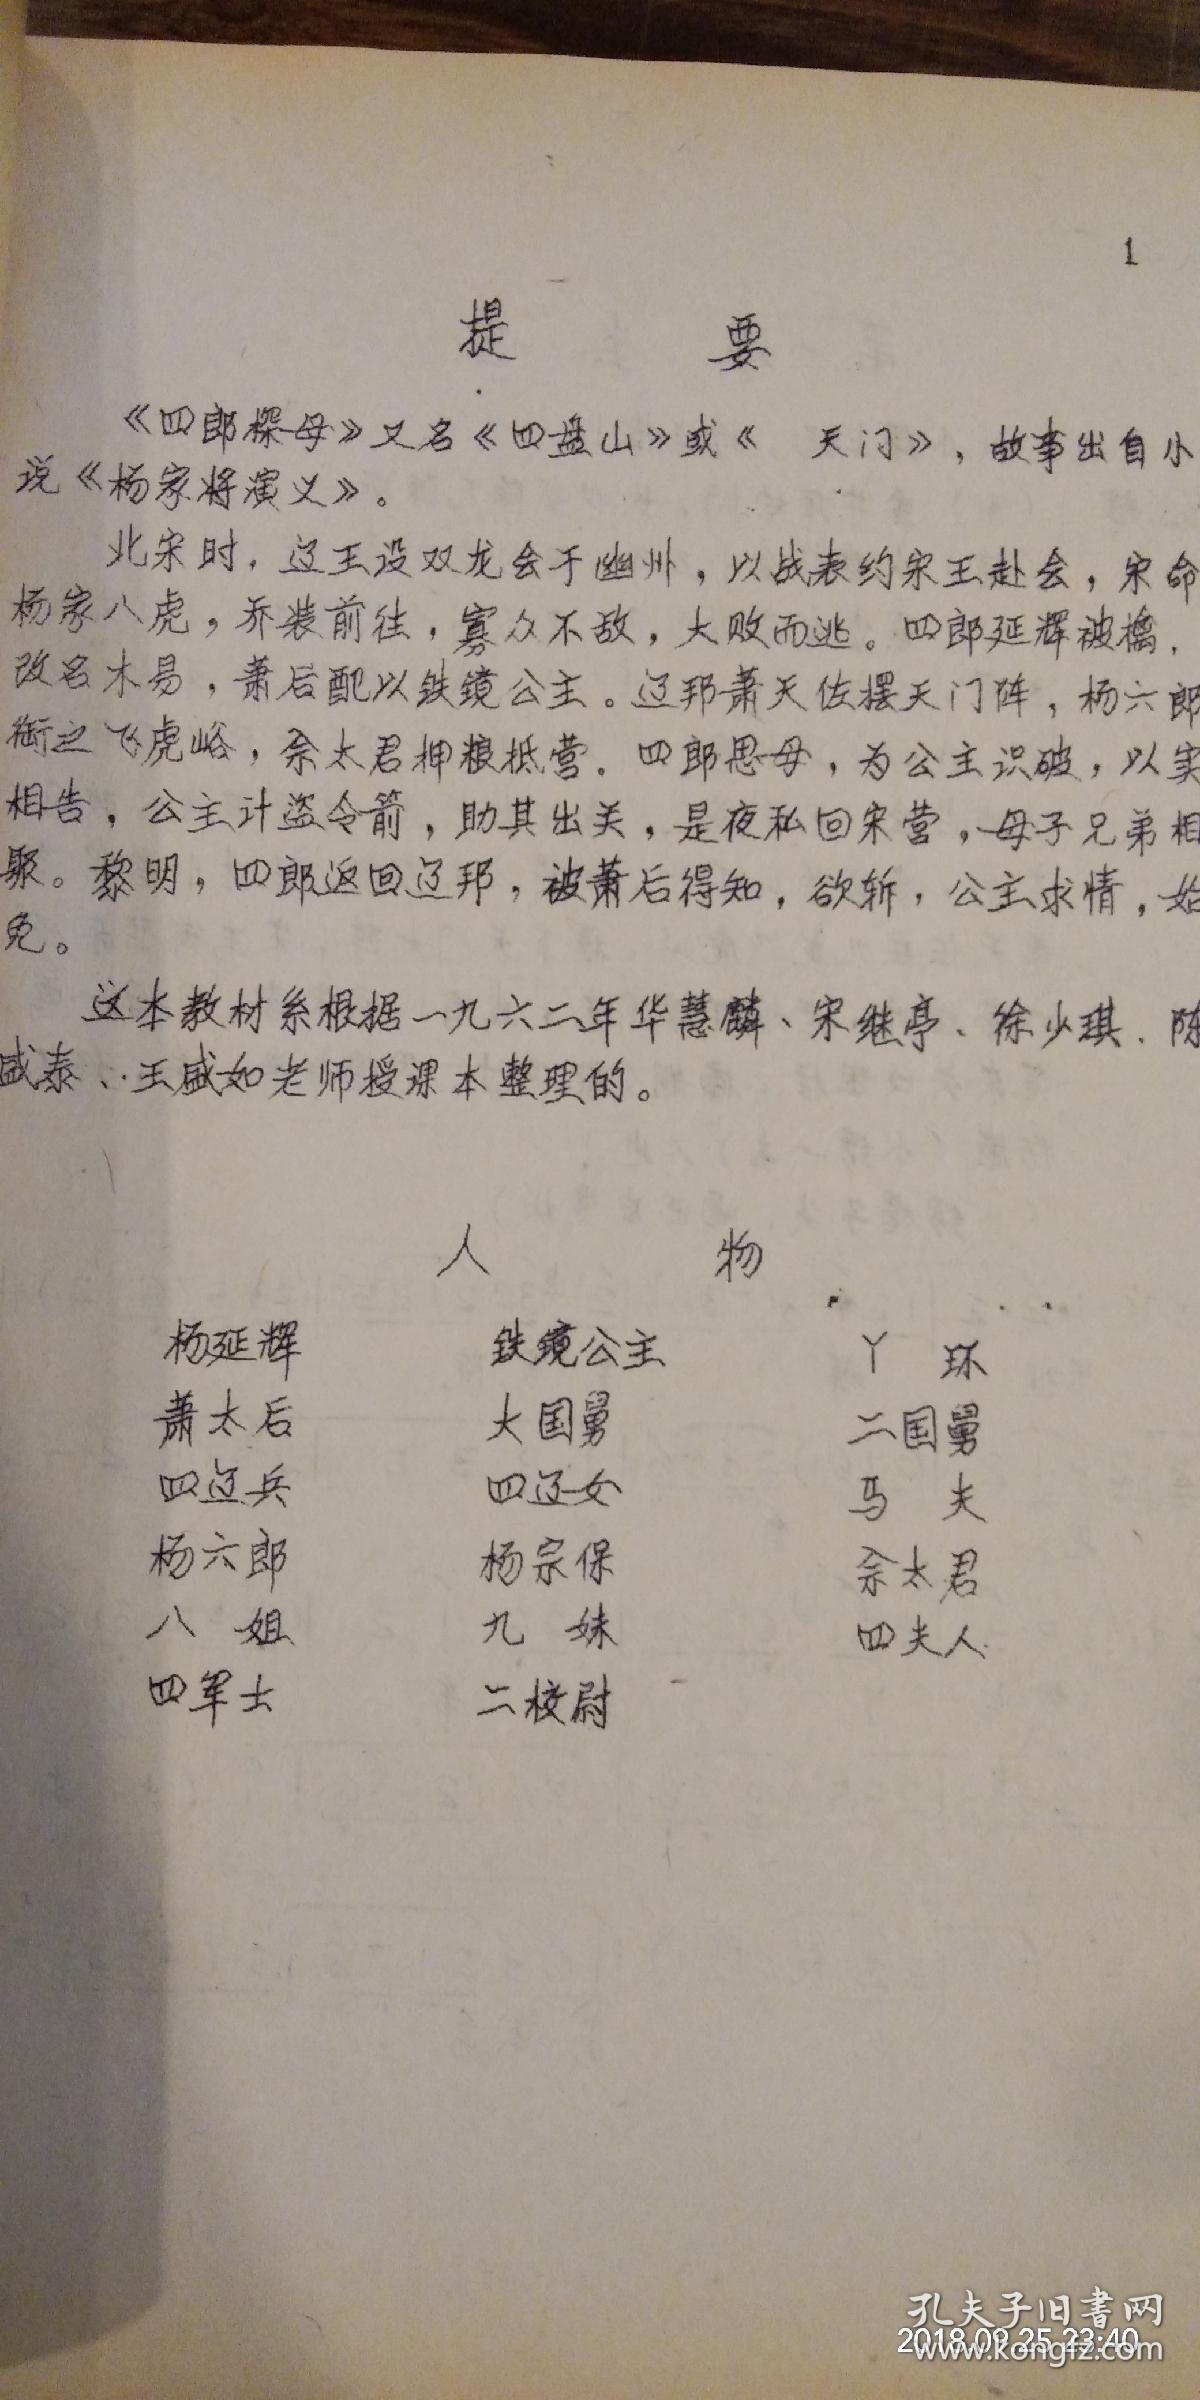 1
提 要
《四郎探母》又名《四盘山》或《 天门》，故事出自小
说《杨家将演义》。
北宋时，辽王设双龙会于幽州，以战表约宋王赴会，宋命
杨家八虎，乔装前往，寡众不敌，大败而逃。四郎延辉被擒，
改名木易，萧后配以铁镜公主。辽邦萧天佐摆天门阵，杨六郎
御之飞虎峪，佘太君押粮抵营。四郎思母，为公主识破，以实
相告，公主计盗令箭，助其出关，是夜私回宋营，母子兄弟相
聚。黎明，四郎返回辽邦，被萧后得知，欲斩，公主求情，始
免。
这本教材系根据一九六二年华慧麟、宋继亭、徐少琪、陈
盛泰、王盛如老师授课本整理的。
人 物
杨延辉 铁镜公主 丫 环
萧太后 大国舅 二国舅
四辽兵 四辽女 马 夫
杨六郎 杨宗保 佘太君
八 姐 九 妹 四夫人
四军士 二校尉
孔夫子旧书网
2018.09.25 23:40
www.kongfz.com